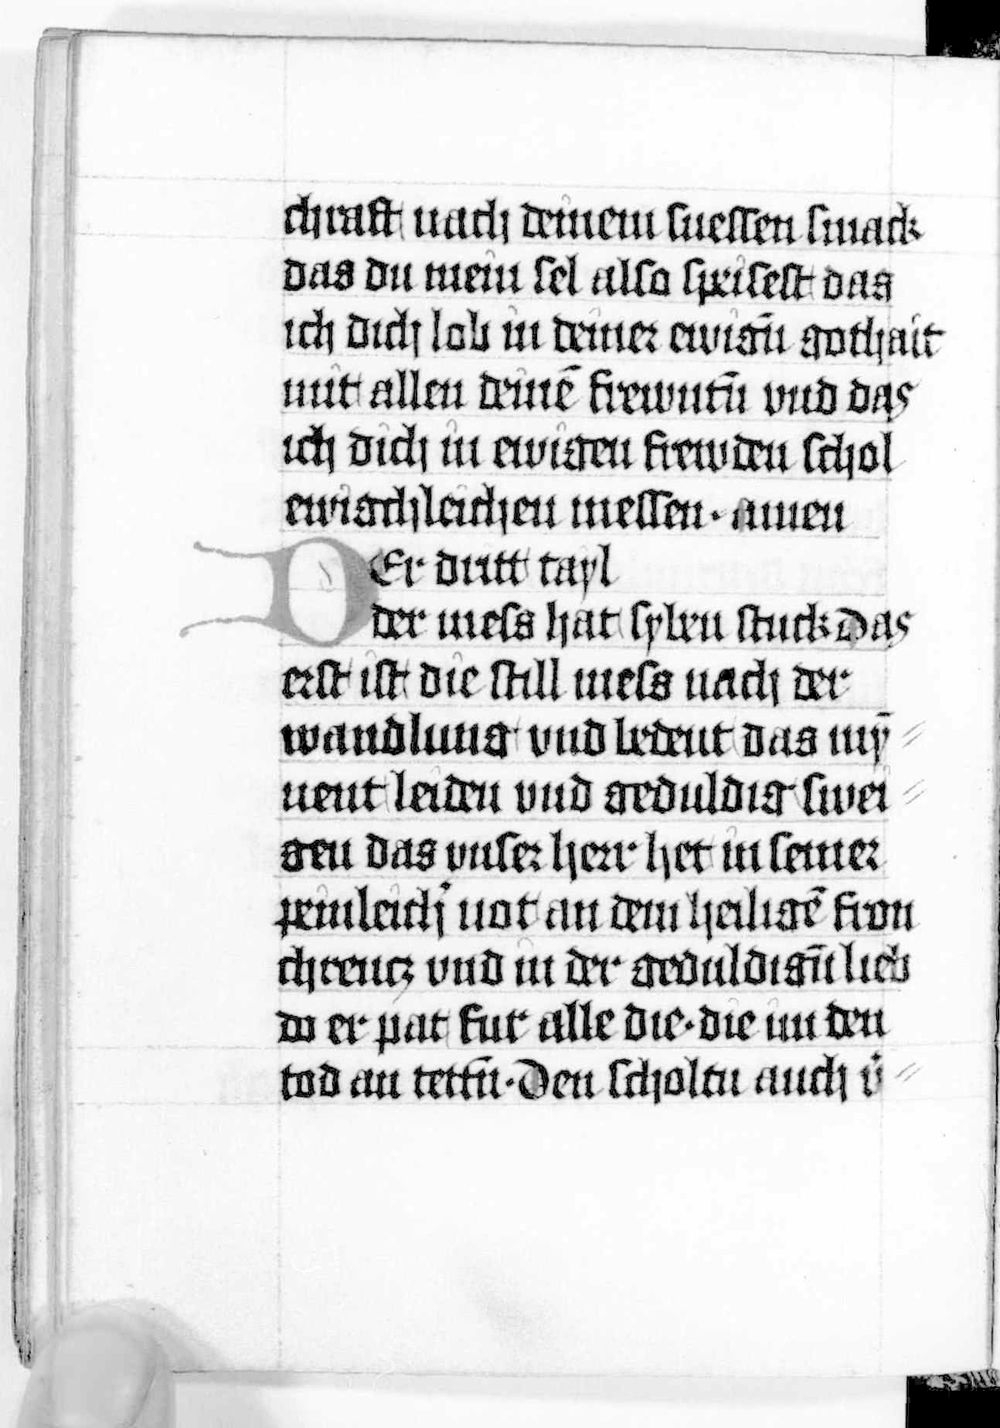 chraft nach deinem suessen smack
das du mein sel also speisest das
ich dich lob in deiner ewign̄ gothait
mit allen deinē frewntn̄ vnd das
ich dich in ewigen frewden schol
ewigchleichen niessen · amen
DEr dritt tayl
der mess hat syben stuck Das
erst ist die still mess nach der
wandlung vnd bedeut das mȳ
nent leiden vnd geduldig swei
gen das vnser herr het in seiner
peinleich̾ not an dem heiligē fron
chreucz vnd in der geduldign̄ lieb
do er pat fur alle die · die im den
tod an tettn̄ · Den scholtu auch v̾